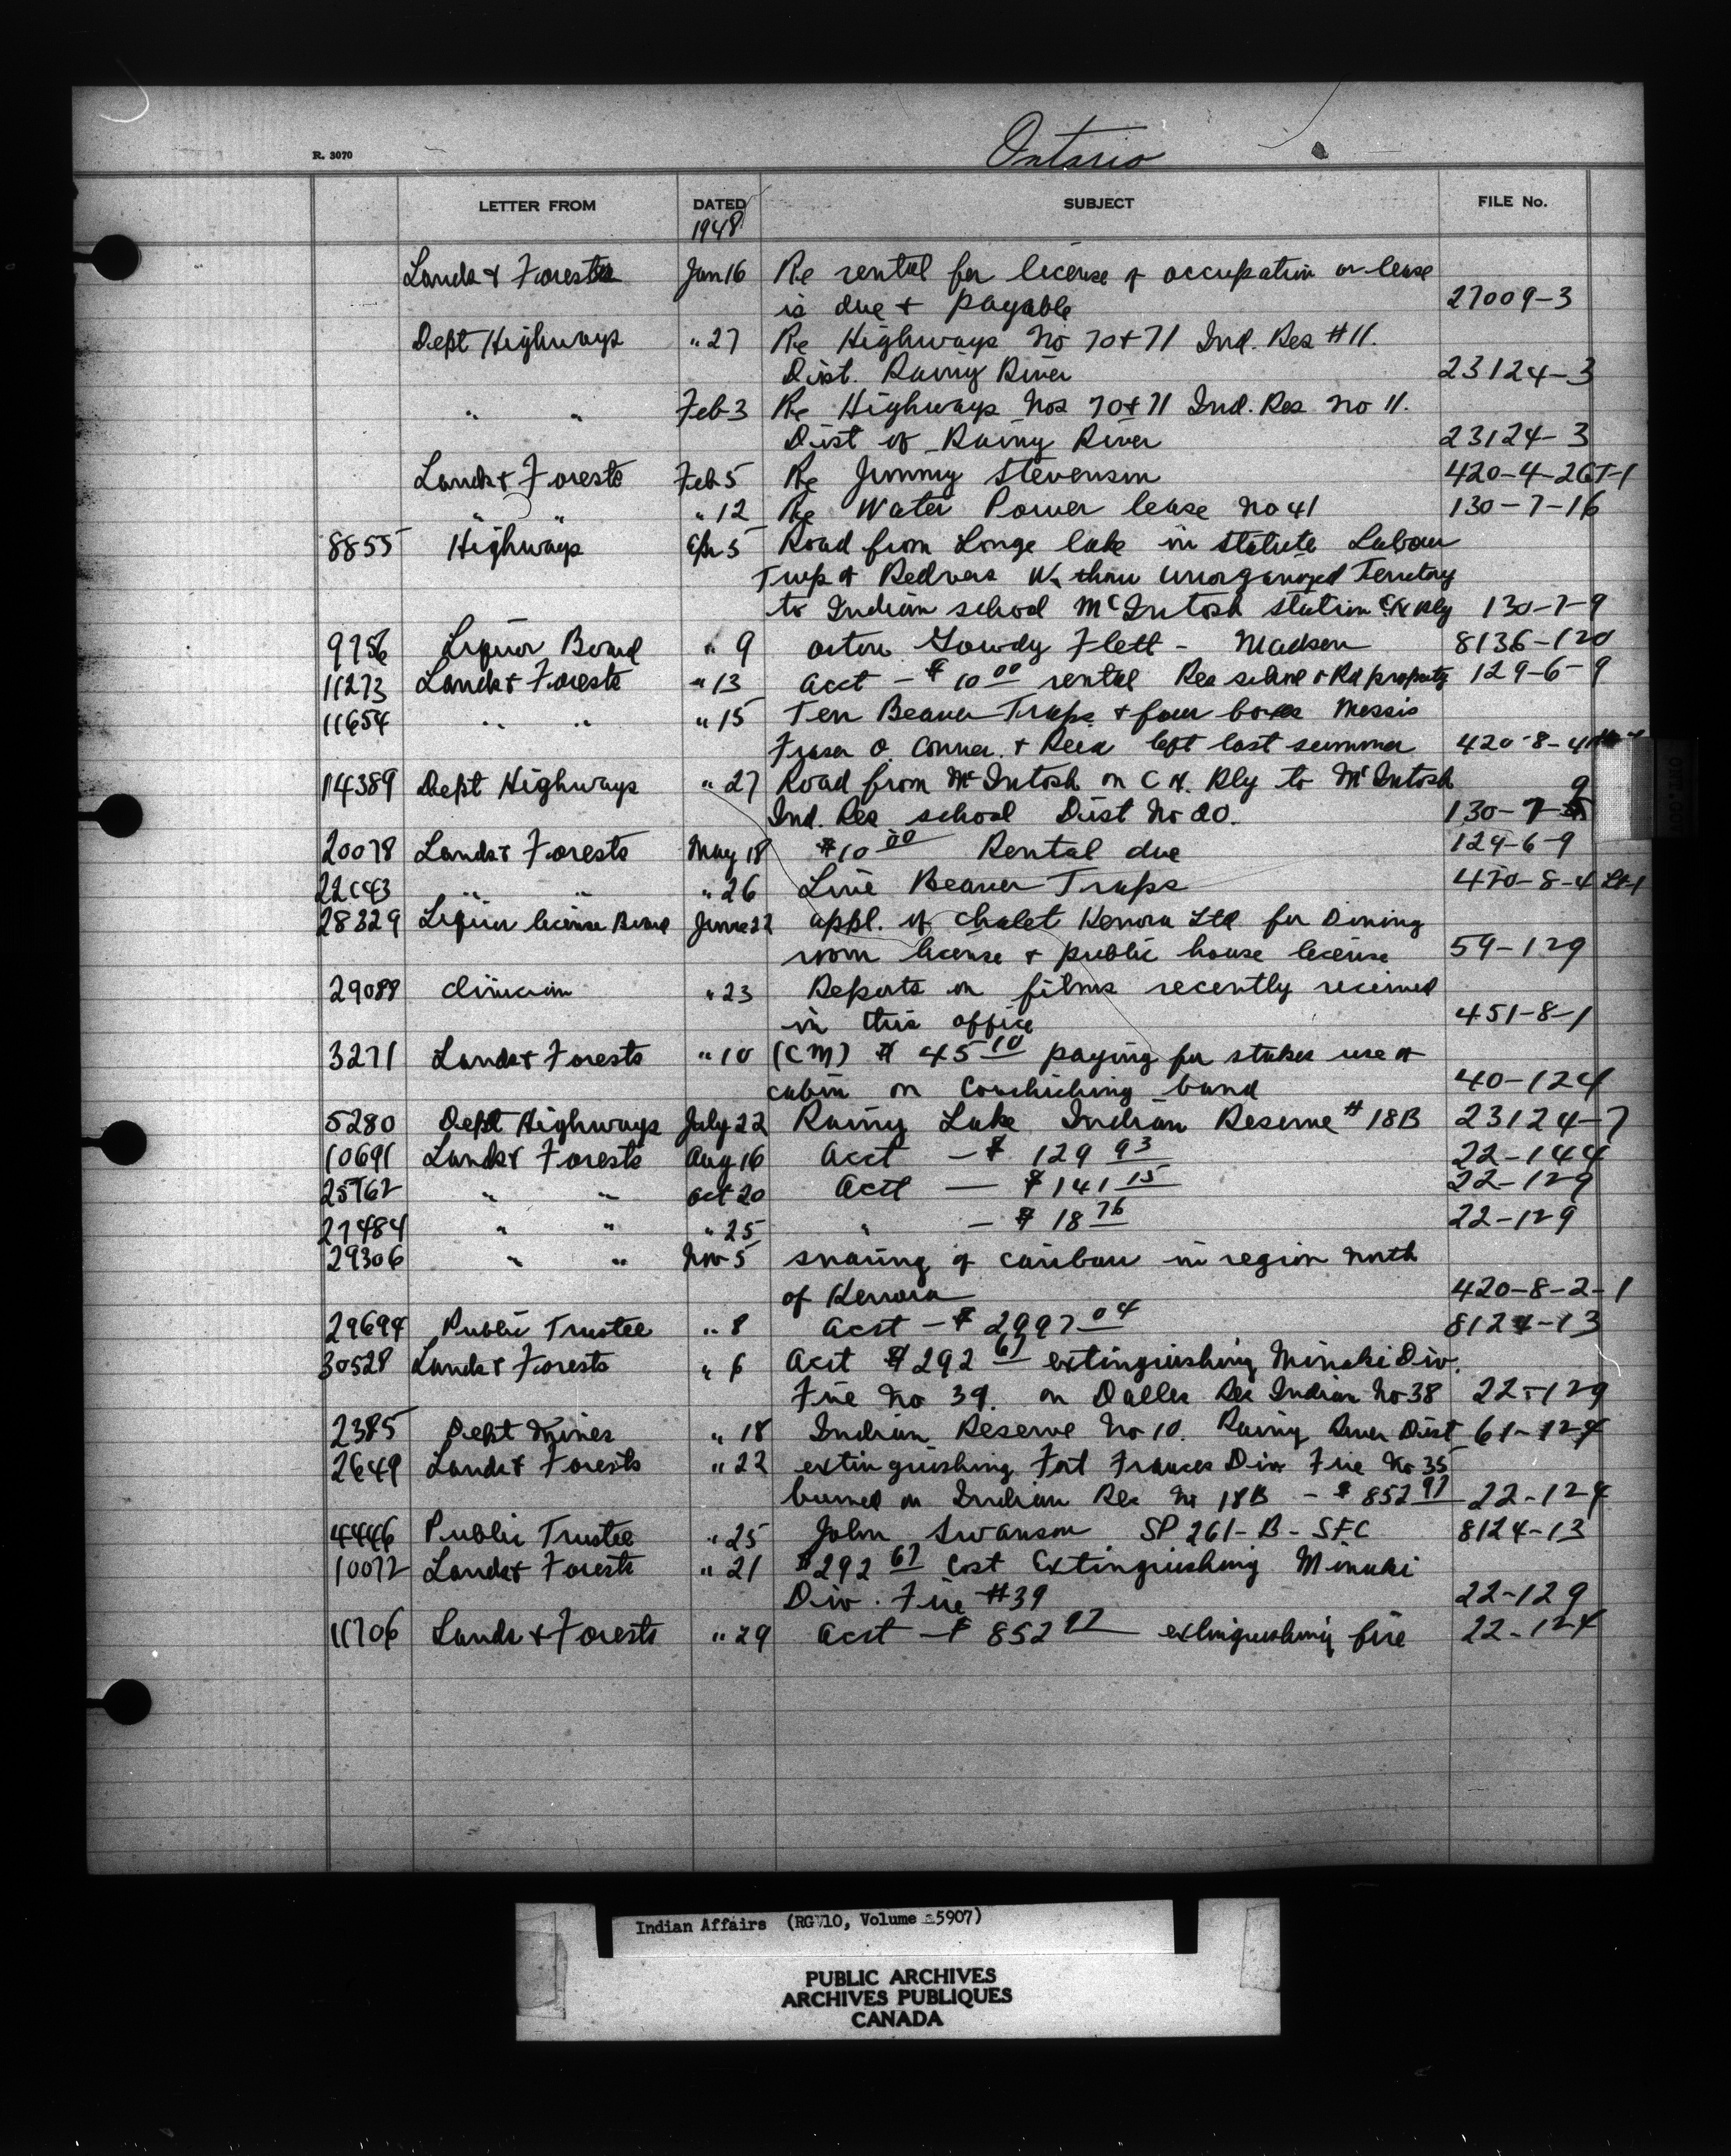 Ontario
R. 3070
LETTER FROM DATED SUBJECT FILE No.
1948
Lands & Forests Jan 16 Re rental for license of occupation or lease
is due & payable 27009-3
Dept Highways " 27 Re Highways No 70 & 71 Ind. Res #11.
Dist. Rainy River 23124-3
" " Feb 3 Re Highways Nos 70 & 71 Ind. Res No 11.
Dist of Rainy River 23124-3
Lands & Forests Feb 5 Re Jimmy Stevenson 420-4-2
" " " 12 Re Water Power lease No 41 130-7-16
8855 Highways Apr 5 Road from Longe lake in Statute Labour
Twp of Redvers thru unorganized Territory
to Indian school McIntosh station CN Rly 130-7-9
9756 Liquor Board " 9 Gowdy Flett - Madsen 8136-120
11273 Lands & Forests " 13 acct - $10 00 rental Res school & Rd property 129-6-9
11654 " " " 15 Ten Beaver Traps & four boxes Messrs
Fraser O. Conner & Reid left last summer 420-8-4
14389 Dept Highways " 27 Road from McIntosh on C N. Rly to McIntosh
Ind. Res school Dist No 20. 130-7-9
20078 Lands & Forests May 18 $10 00 Rental due 129-6-9
" " " 26 Live Beaver Traps 420-8-4 Lt-1
28329 Liquor license Board June 22 appl. of Chalet Kenora Ltd for Dining
room license & public house license 59-129
29088 clinician " 23 Reports on films recently received
in this office 451-8-1
3271 Lands & Forests " 10 (CM) $ 45 10 paying for stakes use of
cabin on Couchiching band 40-124
5280 Dept Highways July 22 Rainy Lake Indian Reserve # 18B 23124-7
10691 Lands & Forests Aug 16 Acct - $ 129 93 22-144
25762 " " Oct 20 Acct - $ 141 15 22-129
27484 " " " 25 " - $ 18 76 22-129
29306 " " Nov 5 snaring of caribou in region north
of Kenora 420-8-2-1
29694 Public Trustee " 8 Acct - $ 2997 04 8124-13
30528 Lands & Forests " 6 Acct $ 292 67 extinguishing Minaki Div.
Fire No 39. on Dalles Res Indian No 38 22-129
2385 Dept Mines " 18 Indian Reserve No 10. Rainy River Dist 61-124
2649 Lands & Forests " 22 extinguishing Fort Frances Div Fire No 35
burned on Indian Res No 18B - $ 852 97 22-124
4446 Public Trustee " 25 John Swanson SP 261-B-SFC 8124-13
10072 Lands & Forests " 21 $292 67 Cost Extinguishing Minaki
Div. Fire #39 22-129
11706 Lands & Forests " 29 Acct - $ 852 97 extinguishing fire 22-124
Indian Affairs (RG 10, Volume 5907)
PUBLIC ARCHIVES
ARCHIVES PUBLIQUES
CANADA